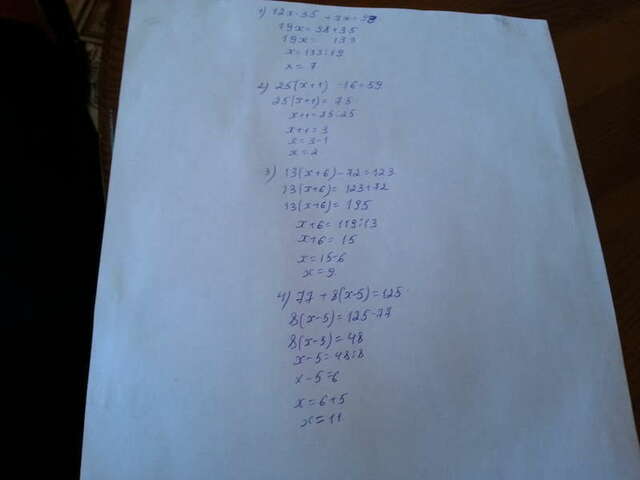 1) 12x-35 + 7x=98
19x=98+35
19x= 133
x=133:19
x=7
2) 25(x+1) -16=59
25(x+1)= 75
x+1=75:25
x+1=3
x=3-1
x=2
3) 13(x+6)-72=123
13(x+6)= 123+72
13(x+6)= 195
x+6= 119:13
x+6= 15
x=15-6
x=9
4) 77 +8(x-5)=125
8(x-5)=125-77
8(x-5)=48
x-5=48:8
x-5=6
x=6+5
x=11